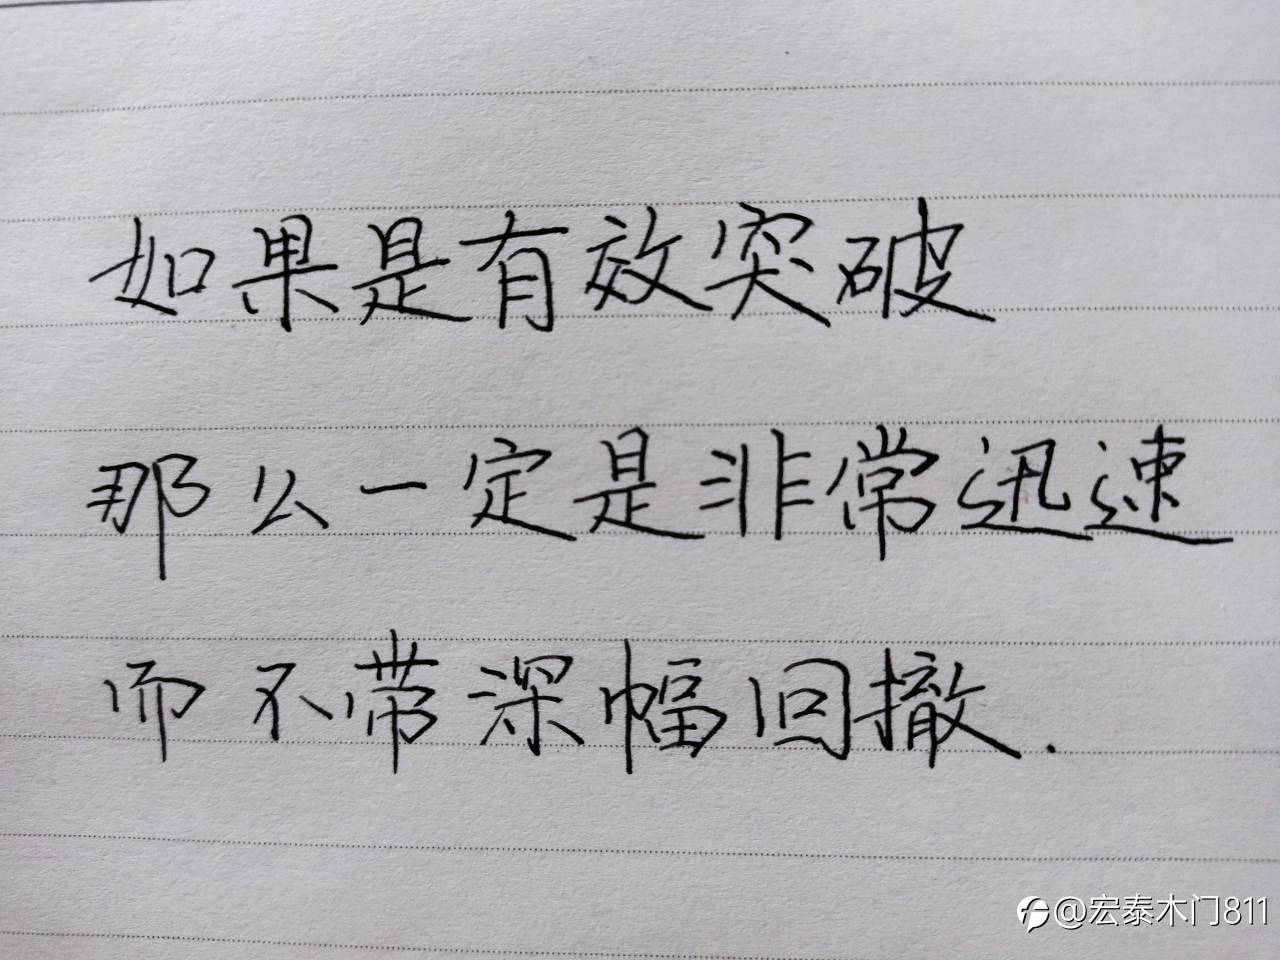 如果是有效突破
那么一定是非常迅速
而不带深幅回撤.
@宏泰木门811